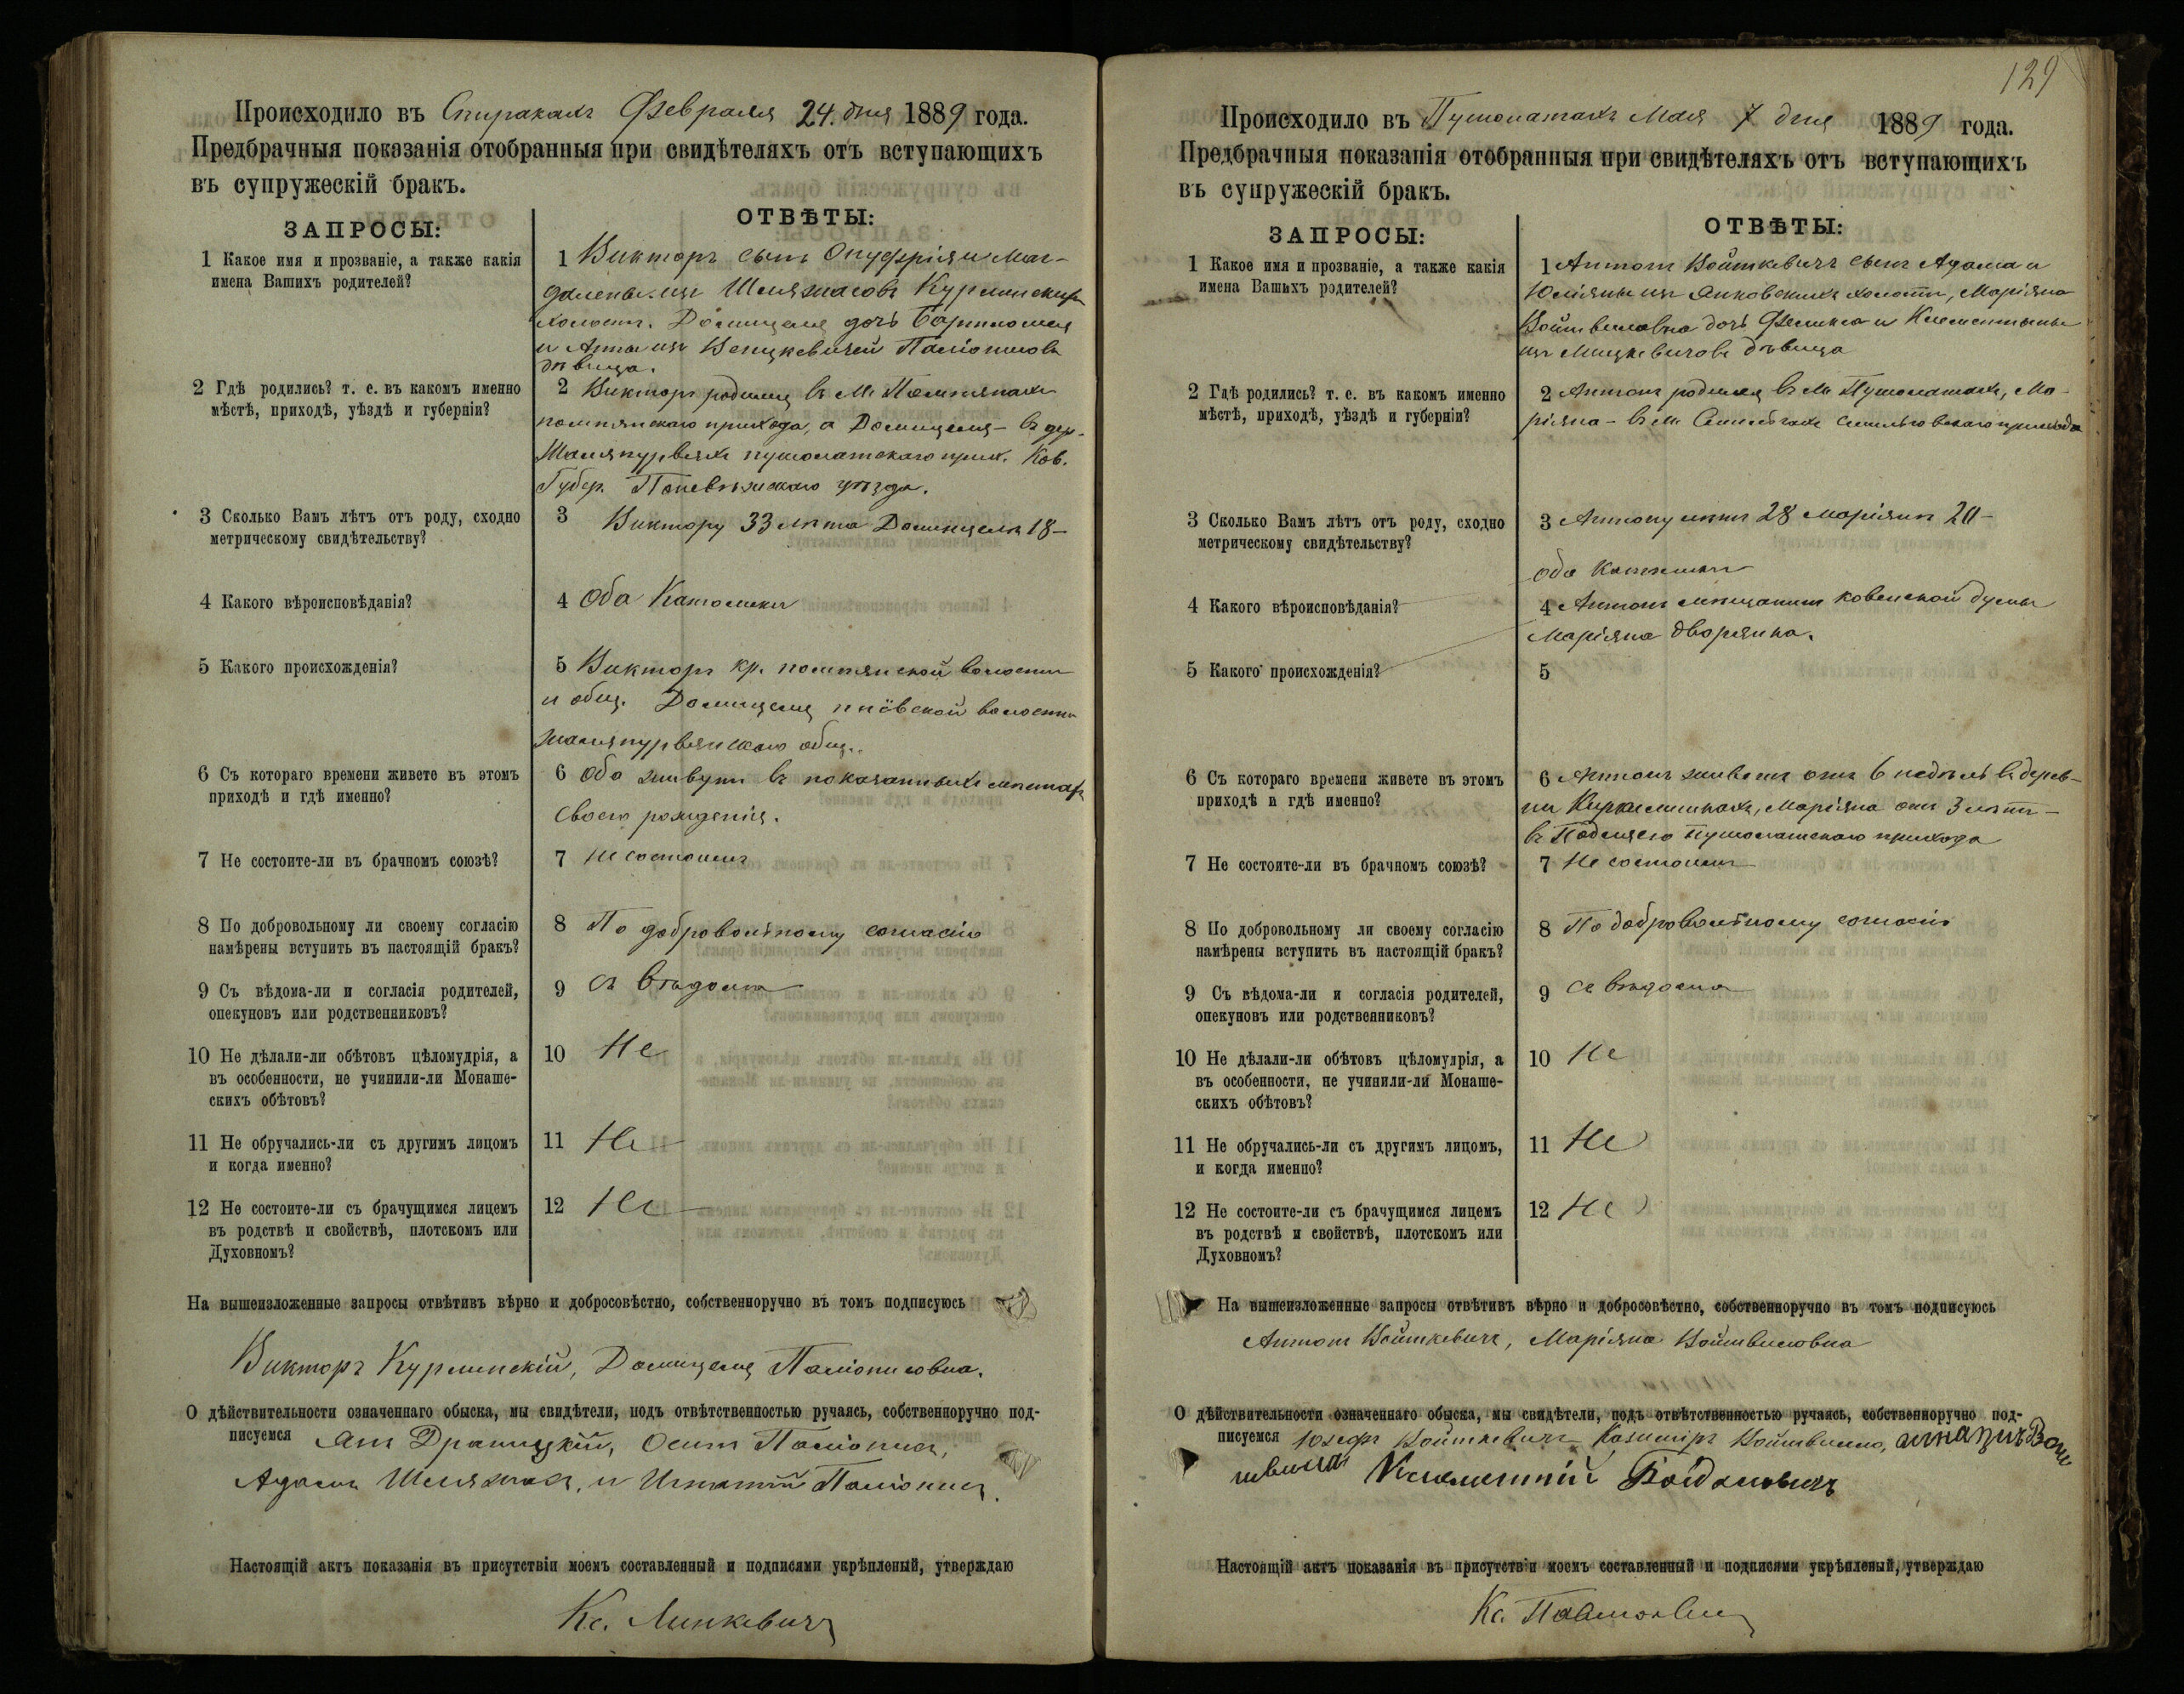 Происходило въ Спиракахъ Февраля 24. дня 1889 года.
Предбрачныя показанія отобранныя при свидѣтеляхъ отъ вступающихъ
въ супружескій бракъ.
ЗАПРОСЫ:
ОТВѢТЫ:
1 Какое имя и прозваніе, а также какія
имена Вашихъ родителей?
1 Викторъ сынъ Онуфрія и Маг-
далены изъ Шляжасовъ Курминскихъ
холостъ. Домицеля дочь Бартломея
и Анны изъ Венцкевичей Паліонисовъ
дѣвица.
2 Гдѣ родились? т. е. въ какомъ именно
мѣстѣ, приходѣ, уѣздѣ и губерніи?
2 Викторъ родился въ М.
прихода, а Домицеля - въ дер.
пушолатскаго прих. Ков.
Губер. Поневѣжскаго уѣзда.
3 Сколько Вамъ лѣтъ отъ роду, сходно
метрическому свидѣтельству?
3 Виктору 33 лѣта Домицелѣ 18 -
4 Какого вѣроисповѣданія?
4 Оба Католики
5 Какого происхожденія?
5 Викторъ кр. волости
и общ. Домицеля волости
общ..
6 Съ котораго времени живете въ этомъ
приходѣ и гдѣ именно?
6 Оба живутъ въ показанныхъ мѣстахъ
своего рожденія.
7 Не состоите-ли въ брачномъ союзѣ?
7 Не состоимъ
8 По добровольному ли своему согласію
намѣрены вступить въ настоящій бракъ?
8 По добровольному согласію
9 Съ вѣдома-ли и согласія родителей,
опекуновъ или родственниковъ?
9 Съ вѣдома
10 Не дѣлали-ли обѣтовъ цѣломудрія, а
въ особенности, не учинили-ли Монаше-
скихъ обѣтовъ?
10 Не
11 Не обручались-ли съ другимъ лицомъ
и когда именно?
11 Не
12 Не состоите-ли съ брачущимся лицемъ
въ родствѣ и свойствѣ, плотскомъ или
Духовномъ?
12 Не
На вышеизложенные запросы отвѣтивъ вѣрно и добросовѣстно, собственноручно въ томъ подписуюсь
Викторъ Курминскій, Домицеля Паліонисовна.
О дѣйствительности означеннаго обыска, мы свидѣтели, подъ отвѣтственностью ручаясь, собственноручно под-
писуемся Янъ Осипъ Паліонисъ,
Адамъ Шляжасъ, и Игнатій Паліонисъ.
Настоящій актъ показанія въ присутствіи моемъ составленный и подписями укрѣпленый, утверждаю
Кс. Линкевичъ
129
Происходило въ Пушолатахъ Мая 7 дня 1889 года.
Предбрачныя показанія отобранныя при свидѣтеляхъ отъ вступающихъ
въ супружескій бракъ.
ЗАПРОСЫ:
ОТВѢТЫ:
1 Какое имя и прозваніе, а также какія
имена Вашихъ родителей?
1 Антонъ Войткевичъ сынъ Адама и
Юліяны изъ Янковскихъ холостъ, Маріяна
Войтвиловна дочь Феликса и Клементины
изъ Мицкевичовъ дѣвица
2 Гдѣ родились? т. е. въ какомъ именно
мѣстѣ, приходѣ, уѣздѣ и губерніи?
2 Антонъ родился въ М. Пушолатахъ, Ма-
ріяна - въ М. прихода
3 Сколько Вамъ лѣтъ отъ роду, сходно
метрическому свидѣтельству?
3 Антону лѣтъ 28 Маріянѣ 20 -
оба Католики
4 Какого вѣроисповѣданія?
4 Антонъ мѣщанинъ ковенской думы
Маріяна дворянка.
5 Какого происхожденія?
5
6 Съ котораго времени живете въ этомъ
приходѣ и гдѣ именно?
6 Антонъ живетъ отъ 6 недѣль въ дерев-
ни Маріяна отъ 3 лѣтъ -
въ пушолатскаго прихода
7 Не состоите-ли въ брачномъ союзѣ?
7 Не состоимъ
8 По добровольному ли своему согласію
намѣрены вступить въ настоящій бракъ?
8 По добровольному согласію
9 Съ вѣдома-ли и согласія родителей,
опекуновъ или родственниковъ?
9 Съ вѣдома
10 Не дѣлали-ли обѣтовъ цѣломудрія, а
въ особенности, не учинили-ли Монаше-
скихъ обѣтовъ?
10 Не
11 Не обручались-ли съ другимъ лицомъ,
и когда именно?
11 Не
12 Не состоите-ли съ брачущимся лицемъ
въ родствѣ и свойствѣ, плотскомъ или
Духовномъ?
12 Не
На вышеизложенные запросы отвѣтивъ вѣрно и добросовѣстно, собственноручно въ томъ подписуюсь
Антонъ Войткевичъ, Маріяна Войтвиловна
О дѣйствительности означеннаго обыска, мы свидѣтели, подъ отвѣтственностью ручаясь, собственноручно под-
писуемся Юзефъ Войткевичъ Казимиръ Войтвилло,
Настоящій актъ показанія въ присутствіи моемъ составленный и подписями укрѣпленый, утверждаю
Кс.